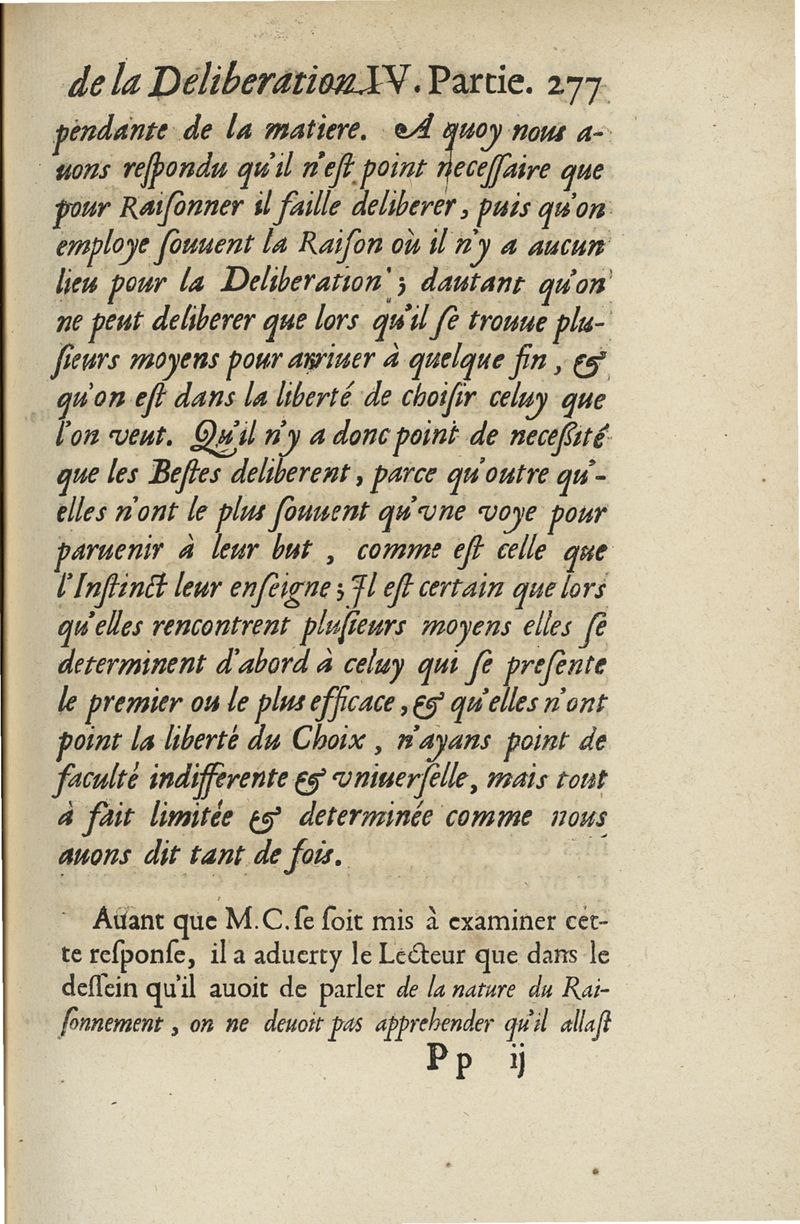 de la Deliberation IV. Partie. 277
pendante de la matiere. A quoy nous a-
uons reſpondu qu'il n'eſt point neceſſaire que
pour Raiſonner il faille deliberer, puis qu'on
employe ſouuent la Raiſon où il n'y a aucun
lieu pour la Deliberation; dautant qu'on
ne peut deliberer que lors qu'il ſe trouue plu-
ſieurs moyens pour arriuer à quelque fin, &
qu'on eſt dans la liberté de choiſir celuy que
l'on veut. Qu'il n'y a donc point de neceſſité
que les Beſtes deliberent, parce qu'outre qu'-
elles n'ont le plus ſouuent qu'vne voye pour
paruenir à leur but, comme eſt celle que
l'Inſtinct leur enſeigne; Il eſt certain que lors
qu'elles rencontrent pluſieurs moyens elles ſe
determinent d'abord à celuy qui ſe preſente
le premier ou le plus efficace, & qu'elles n'ont
point la liberté du Choix, n'ayans point de
faculté indifferente & vniuerſelle, mais tout
à fait limitée & determinée comme nous
auons dit tant de fois.
Auant que M.C. ſe ſoit mis à examiner cet-
te reſponſe, il a aduerty le Lecteur que dans le
deſſein qu'il auoit de parler de la nature du Rai-
ſonnement, on ne deuoit pas apprehender qu'il allaſt
Pp ij